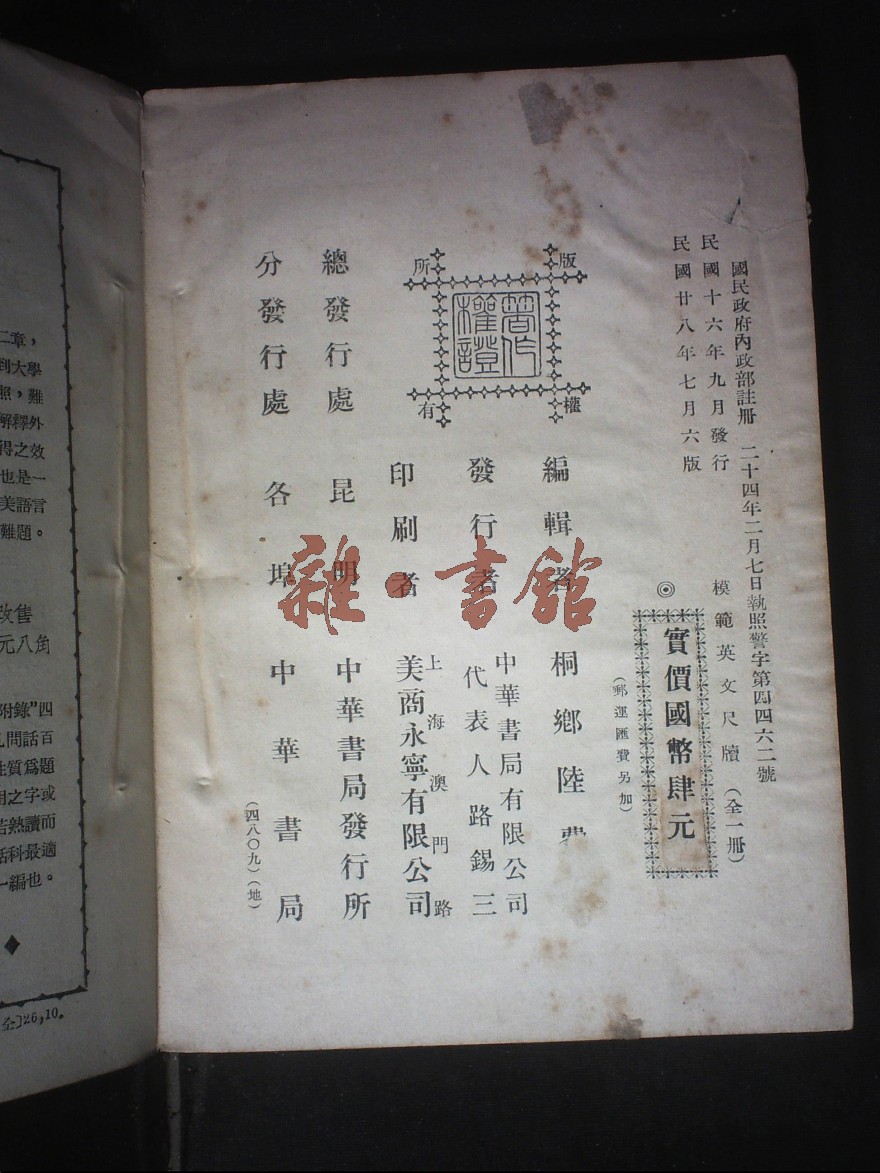 國民政府內政部註冊 二十四年二月七日執照警字第四四六二號
民國十六年九月發行
民國廿八年七月六版
模範英文尺牘(全一冊)
◎
實價國幣肆元
(郵運匯費另加)
版權所有
著作權證
編輯者 桐鄉陸費
發行者 中華書局有限公司
代表人路錫三
印刷者 上海澳門路
美商永寧有限公司
總發行處 昆明 中華書局發行所
分發行處 各埠 中華書局
(四八〇九)(地)
雜·書館
二章,
到大學
照,難
解釋外
得之效
也是一
美語言
難題。
改售
元八角
附錄”四
問話百
性質爲題
用之字或
若熟讀而
話科最適
一編也。
全〕26,10.